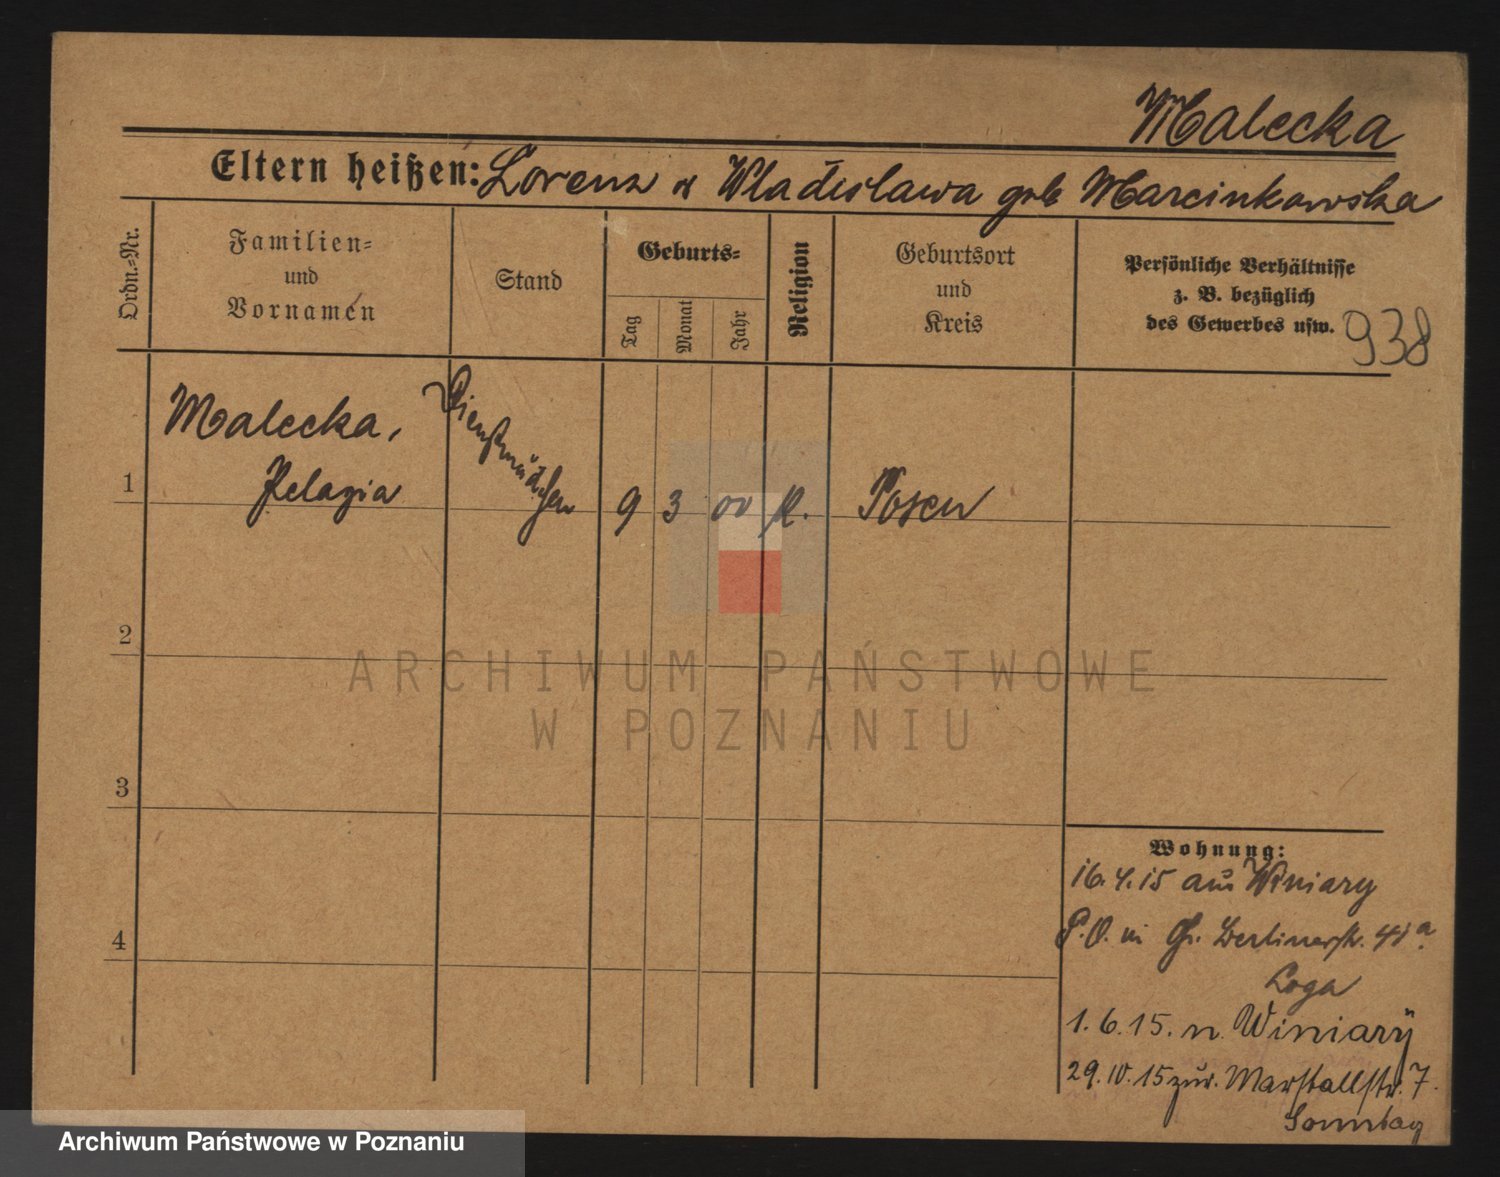 Malecka
Eltern heißen: Lorenz u Wladislawa geb Marcinkowska
Ordn.=Nr.
Familien=
und
Vornamen
Stand
Geburts=
Tag
Monat
Jahr
Religion
Geburtsort
und
Kreis
Persönliche Verhältnisse
z. B. bezüglich
des Gewerbes usw.
938
1
Malecka,
Pelagia
Dienstmädchen
9
3
00
k.
Posen
2
3
4
Wohnung:
16.4.15 aus Winiary
P.O. in Gr. Berlinerstr. 41a.
Loga
1.6.15. n. Winiary
29.10.15 zur. Marstallstr. 7.
Sonntag
ARCHIWUM PAŃSTWOWE
W POZNANIU
Archiwum Państwowe w Poznaniu